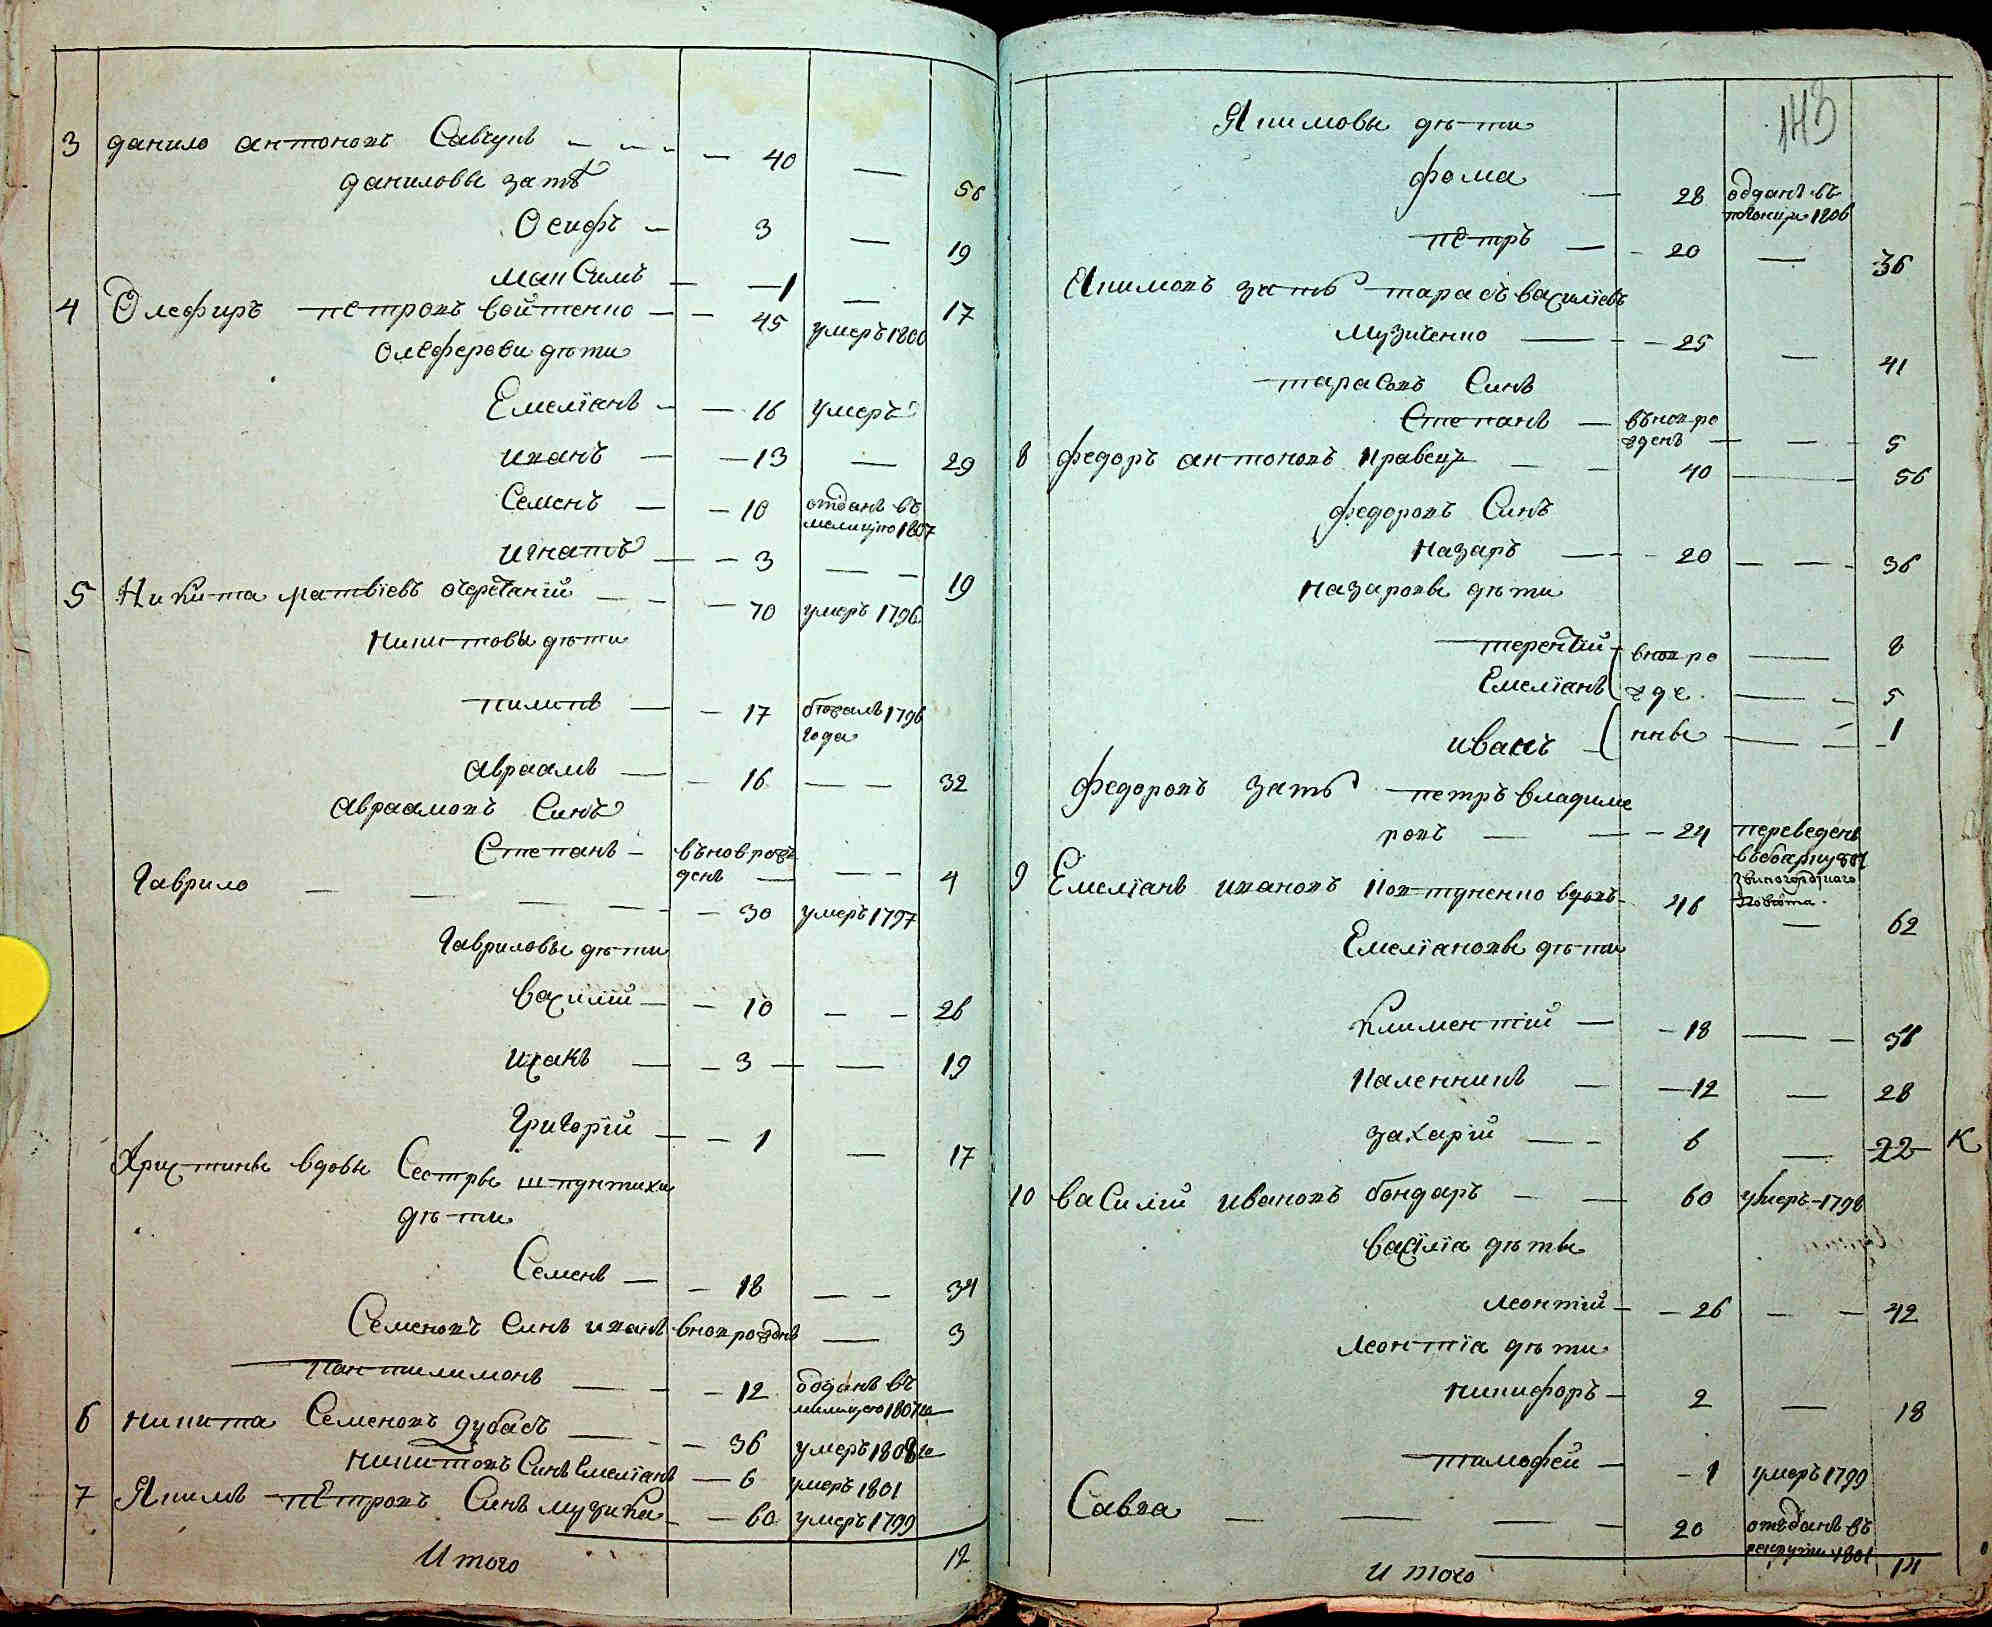 3 данило антоновъ Савчукъ — 40 — 56
даниловы зать
Осифъ — 3 — 19
макСимъ — 1 — 17
4 Олефиръ петровъ войтенко — 45 умеръ 1800
Олеферови дѣти
Емелїанъ — 16 умеръ
иванъ — 13 — 29
Семенъ — 10 отданъ въ
милицїю 1807
игнатъ — 3 — 19
5 Никита матвїевъ очеретаний — 70 умеръ 1796
никитовы дѣти
пилипъ — 17 бежалъ 1796
года
авраамъ — 16 — 32
авраамовъ Синъ
Степанъ — вьноврож
денъ — 4
Гаврило — 30 умеръ 1797
Гавриловы дѣти
василїй — 10 — 26
исакъ — 3 — 19
Григорїй — 1 — 17
Христины вдовы Сестры шпунтихи
дѣти
Семенъ — 18 — 34
Семеновъ Синъ иванъ вновроздн — 3
пантилимонъ — 12 оддань въ
милицїю 1807го
6 никита Семеновъ дубасъ — 36 умеръ 1808го
никитовъ Синъ Емелїанъ — 6 умеръ 1801
7 Якимъ петровъ Синъ музика — 60 умеръ 1799
Итого 12
143
Якимовы дѣти
фома — 28 оддань въ
1806
петръ — 20 — 36
Якимовъ зать тарасъ василїевъ
музиченко — 25 — 41
тарасовъ Синъ
Степанъ — вьновро
жденъ — 5
8 федоръ антоновъ кравецъ — 40 — 56
федоровъ Синъ
назаръ — 20 — 36
назаровы дѣти
терентїй — вновро — 8
Емелїанъ жде — 5
иванъ нны — 1
федоровъ зать петръ владими
ровъ — 24 переведенъ
звиногородскаго
9 Емелїанъ ивановъ Ковтуненко вдовъ 46 повѣта — 62
Емелїановы дѣти
климентїй — 18 — 34
каленикъ — 12 — 28
захарїй — 6 — 22 К
10 ваСилїй ивановъ бондаръ — 60 умеръ 1798
васїлїа дѣти
леонтїй — 26 — 42
леонтїа дѣти
никифоръ — 2 — 18
тимофей — 1 умеръ 1799
Савва — 20 отъданъ въ
рекруты 1801
итого 14